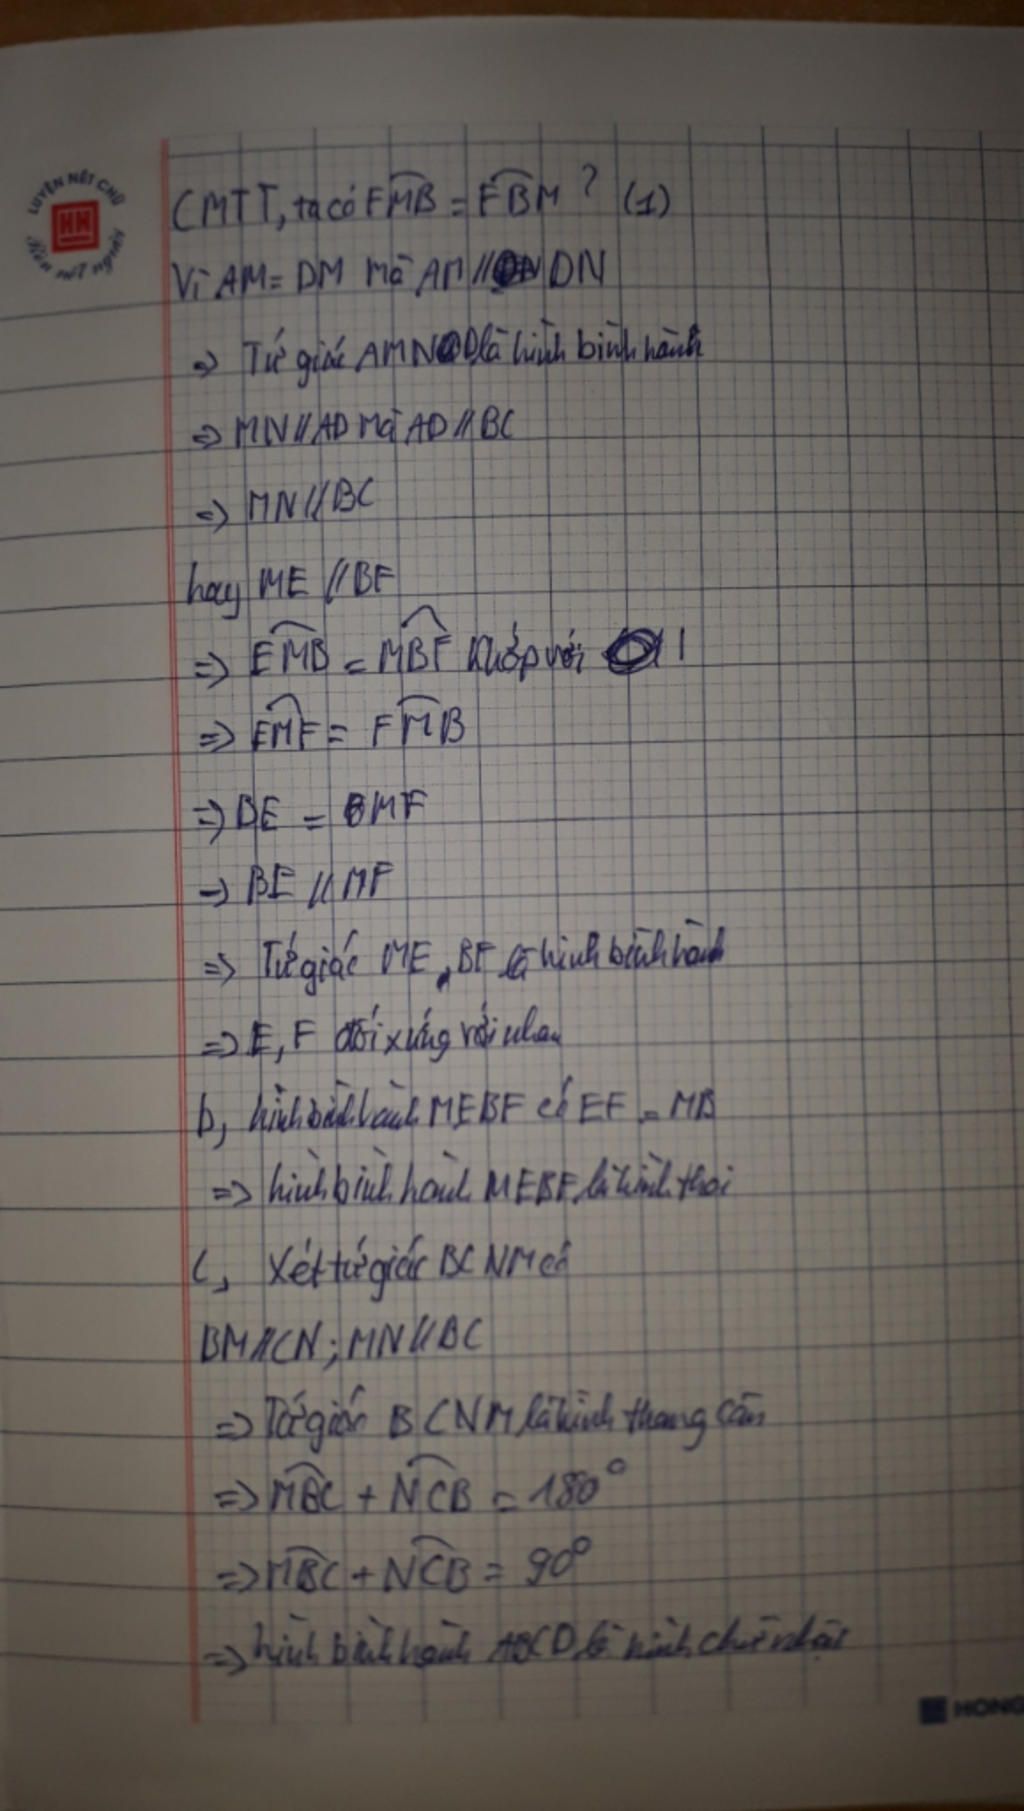 LUYỆN NÉT CHỮ
HN
Rèn nết người
CMTT, ta có FMB = FBM ? (1)
Vì AM = DM mà AM // DN
=> Tứ giác AMND là hình bình hành
=> MN // AD mà AD // BC
=> MN // BC
hay ME // BF
=> EMB = MBF 1
=> EMF = FMB
=> BE = MF
=> BE // MF
=> Tứ giác ME BF là hình bình hành
=> E, F đối xứng với nhau
b, hình bình hành MEBF có EF = MB
=> hình bình hành MEBF là hình thoi
c, Xét tứ giác BCNM có
BM // CN ; MN // BC
=> Tứ giác BCNM là hình thang cân
=> MBC + NCB = 180°
=> MBC + NCB = 90°
=> hình bình hành ABCD là hình chữ nhật
HONG